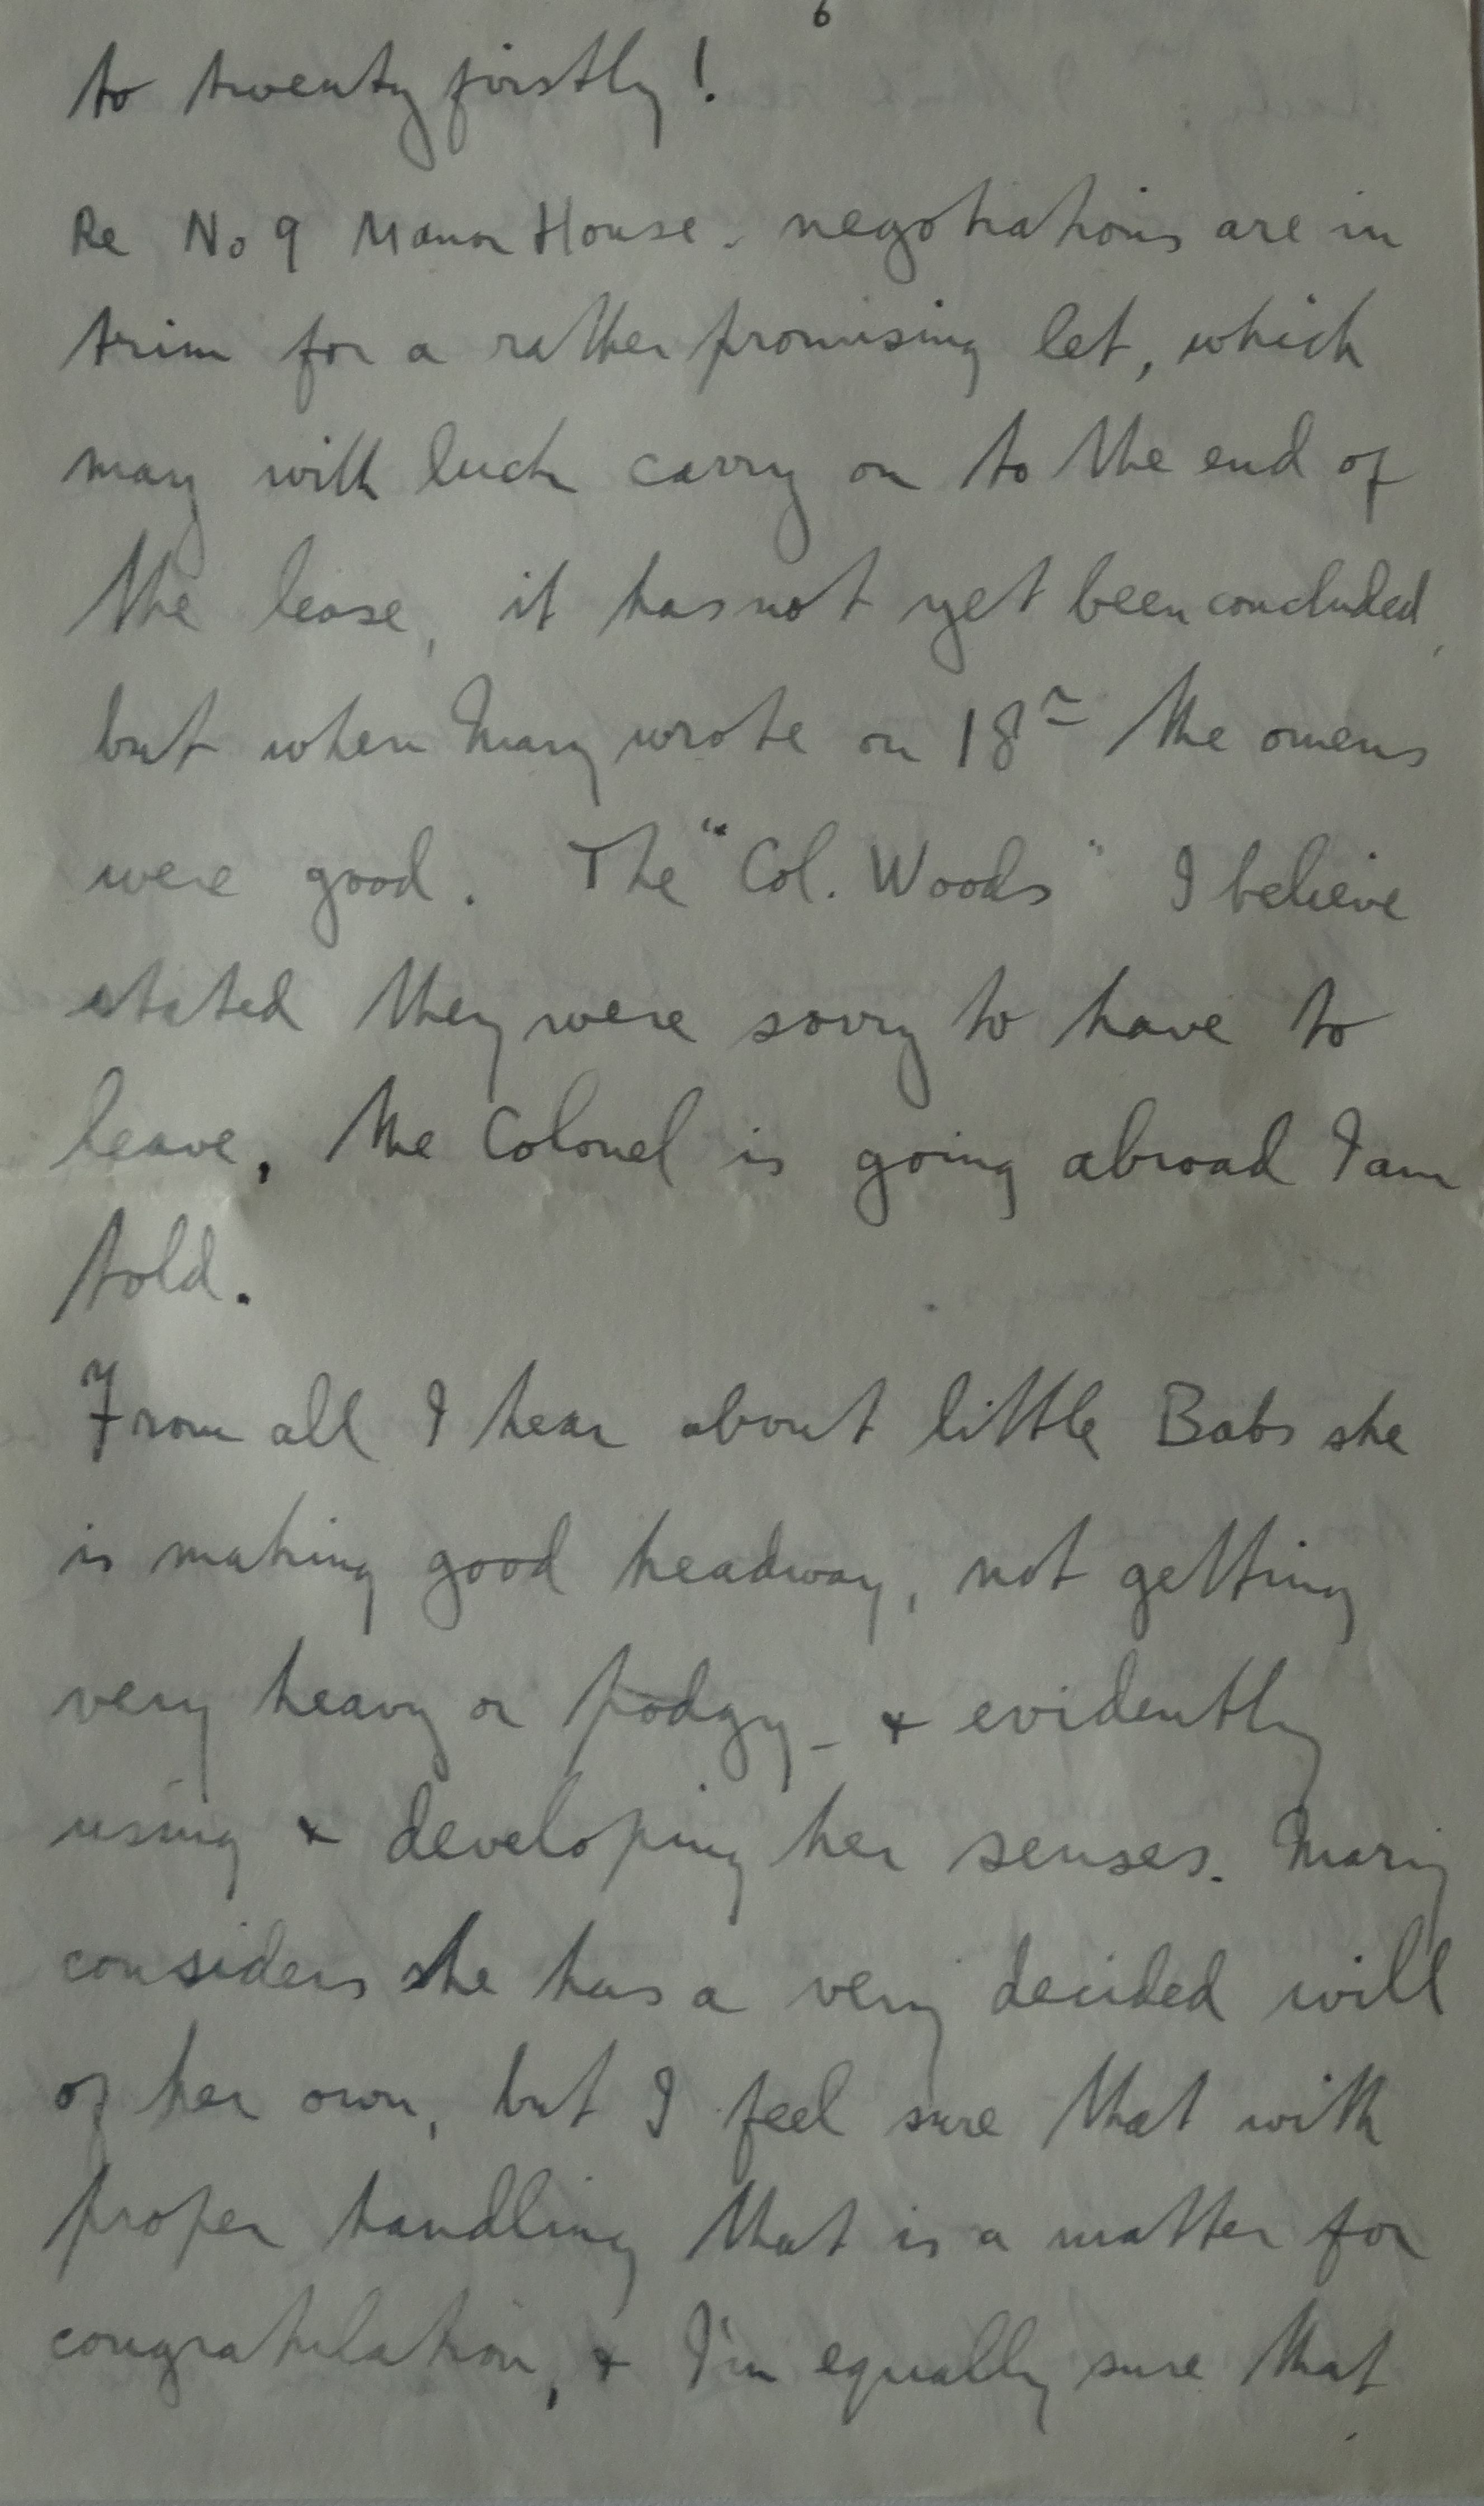 6
to twenty firstly!
Re No 9 Manor House. negotiations are in
trim for a rather promising let, which
may with luck carry on to the end of
the lease, it has not yet been concluded,
but when Mary wrote on 18th the omens
were good. The "Col. Woods" I believe
stated they were sorry to have to
leave, the Colonel is going abroad I am
told.
From all I hear about little Babs she
is making good headway, not getting
very heavy or podgy - & evidently
using & developing her senses. Mary
considers she has a very decided will
of her own, but I feel sure that with
proper handling that is a matter for
congratulation, & I'm equally sure that